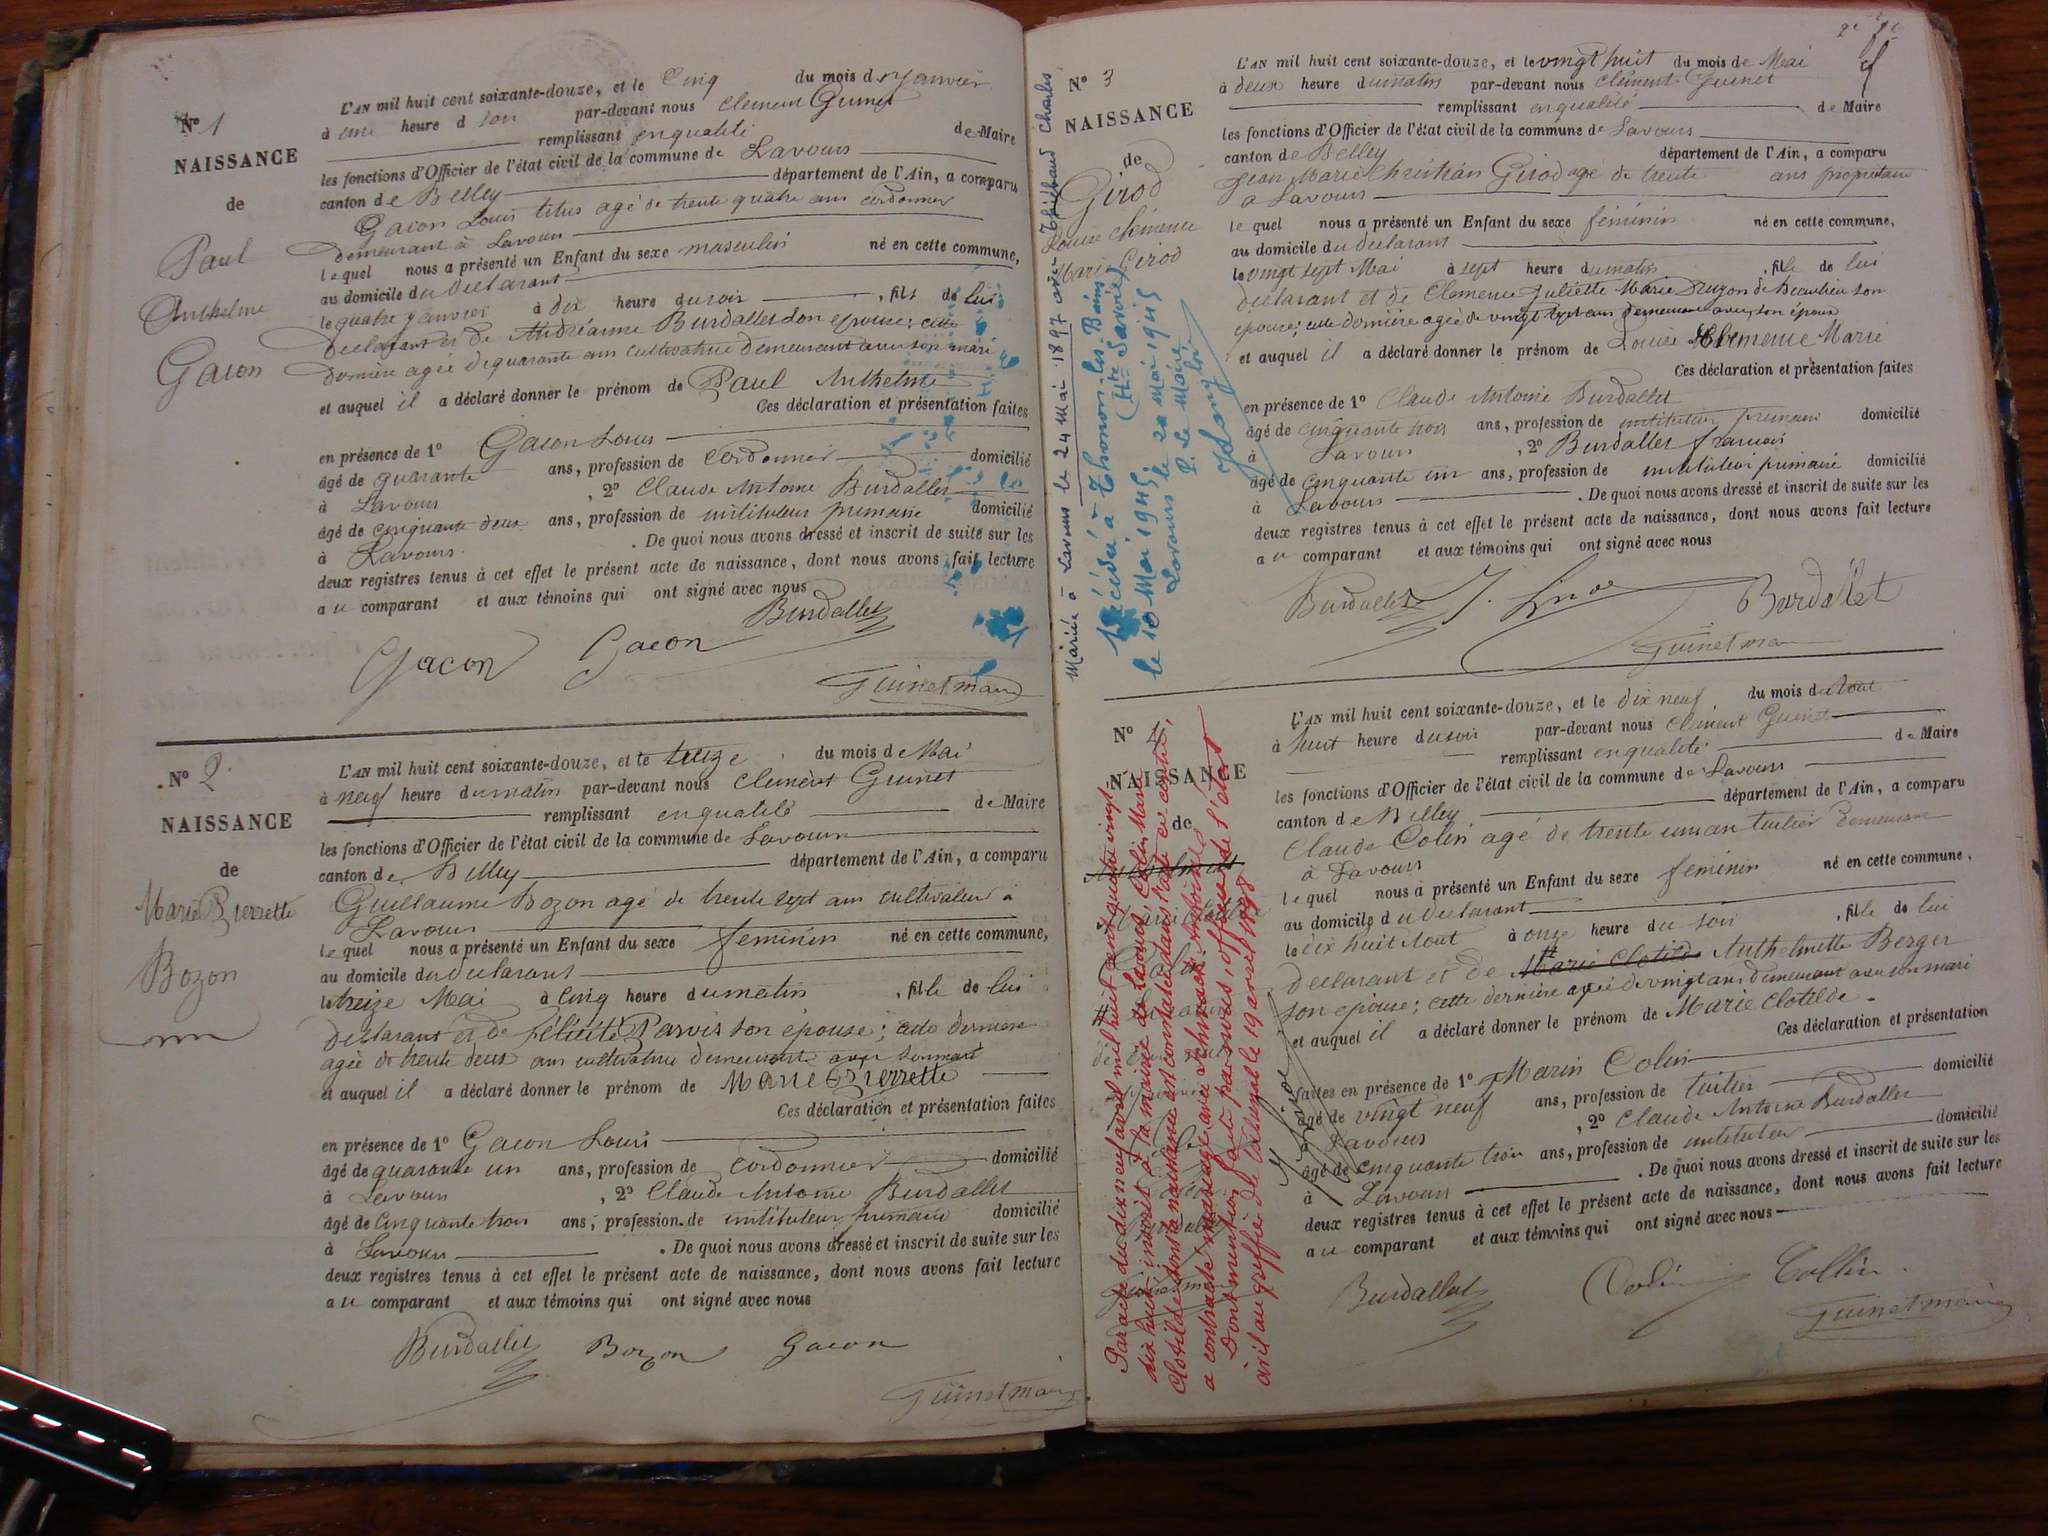 Nº 1
NAISSANCE
de
Paul
Anthelme
Gacon
L'AN mil huit cent soixante-douze, et le Cinq du mois de Janvier
à une heure d soir par-devant nous Clément Guinet
remplissant en qualité de Maire
les fonctions d'Officier de l'état civil de la commune de Lavours
canton de Belley département de l'Ain, a comparu
Gacon Louis titus agé de trente quatre ans cordonnier
demeurant à Lavours
lequel nous a présenté un Enfant du sexe masculin né en cette commune,
au domicile du déclarant
le quatre janvier à dix heure du soir , fils de lui
déclarant et de Andréanne Burdallet son epouse; cette
dernière agée de quarante ans cultivatrice demeurant avec son mari
et auquel il a déclaré donner le prénom de Paul Anthelme
Ces déclaration et présentation faites
en présence de 1º Gacon Louis
âgé de quarante ans, profession de cordonnier domicilié
à Lavours , 2º Claude Antoine Burdallet
âgé de cinquante deux ans, profession de instituteur primaire domicilié
à Lavours . De quoi nous avons dressé et inscrit de suite sur les
deux registres tenus à cet effet le présent acte de naissance, dont nous avons fait lecture
au comparant et aux témoins qui ont signé avec nous
Burdallet
Gacon Gacon
Guinet maire
Nº 2
NAISSANCE
de
Marie Pierrette
Bozon
L'AN mil huit cent soixante-douze, et le treize du mois de Mai
à neuf heure du matin par-devant nous Clément Guinet
remplissant en qualité de Maire
les fonctions d'Officier de l'état civil de la commune de Lavours
canton de Belley département de l'Ain, a comparu
Guillaume Bozon agé de trente sept ans cultivateur à
Lavours
lequel nous a présenté un Enfant du sexe feminin né en cette commune,
au domicile du déclarant
le treize Mai à cinq heure du matin , fille de lui
déclarant et de félicité Parvis son épouse; cette dernière
agée de trente deux ans cultivatrice demeurant avec son mari
et auquel il a déclaré donner le prénom de Marie Pierrette
Ces déclaration et présentation faites
en présence de 1º Gacon Louis
âgé de quarante un ans, profession de cordonnier domicilié
à Lavours , 2º Claude Antoine Burdallet
âgé de cinquante trois ans, profession de instituteur primaire domicilié
à Lavours . De quoi nous avons dressé et inscrit de suite sur les
deux registres tenus à cet effet le présent acte de naissance, dont nous avons fait lecture
au comparant et aux témoins qui ont signé avec nous
Burdallet Bozon Gacon
Guinet maire
Nº 3
NAISSANCE
de
Girod
Louise Clémence
Marie Girod
Mariée à Lavours le 24 Mai 1897 avec Thiébaud Charles
Décédée à Thonon-les-Bains
(Hte Savoie)
le 10 Mai 1945
Lavours le 20 Mai 1945
P. le Maire
L'AN mil huit cent soixante-douze, et le vingt huit du mois de Mai
à deux heure du matin par-devant nous Clément Guinet
remplissant en qualité de Maire
les fonctions d'Officier de l'état civil de la commune de Lavours
canton de Belley département de l'Ain, a comparu
Jean Marie Christian Girod agé de trente ans propriétaire
a Lavours
le quel nous a présenté un Enfant du sexe féminin né en cette commune,
au domicile du déclarant
le vingt sept Mai à sept heure du matin , fille de lui
déclarant et de Clémence Juliette Marie Druzon de Beaulieu son
épouse; cette dernière agée de vingt sept ans demeurant avec son époux
et auquel il a déclaré donner le prénom de Louise Clémence Marie
Ces déclaration et présentation faites
en présence de 1º Claude Antoine Burdallet
âgé de cinquante trois ans, profession de instituteur primaire domicilié
à Lavours , 2º Burdallet françois
âgé de cinquante un ans, profession de instituteur primaire domicilié
à Lavours . De quoi nous avons dressé et inscrit de suite sur les
deux registres tenus à cet effet le présent acte de naissance, dont nous avons fait lecture
au comparant et aux témoins qui ont signé avec nous
Burdallet J. Girod Burdallet
Guinet maire
Nº 4
NAISSANCE
de
Marie Clotilde
Colin
Par acte du dix neuf avril mil huit cent quatre vingt
dix huit, inscrit à la mairie de Lavours, Colin Marie
Clotilde dont la naissance est constatée dans l'acte ci contre,
a contracté mariage avec Schmuck Antoine
Dont mention faite par nous, officier de l'état
civil au greffe de
le 19 avril 1898
L'AN mil huit cent soixante-douze, et le dix neuf du mois d'Aout
à huit heure du soir par-devant nous Clément Guinet
remplissant en qualité de Maire
les fonctions d'Officier de l'état civil de la commune de Lavours
canton de Belley département de l'Ain, a comparu
Claude Colin agé de trente un an tuilier demeurant
à Lavours
le quel nous a présenté un Enfant du sexe féminin né en cette commune,
au domicile du déclarant
le dix huit Aout à onze heure du soir , fille de lui
déclarant et de Marie Clotilde Anthelmette Berger
son épouse; cette dernière agée de vingt ans demeurant avec son mari
et auquel il a déclaré donner le prénom de Marie Clotilde
Ces déclaration et présentation
faites en présence de 1º Marin Colin
âgé de vingt neuf ans, profession de tuilier domicilié
à Lavours , 2º Claude Antoine Burdallet
âgé de cinquante trois ans, profession de instituteur domicilié
à Lavours . De quoi nous avons dressé et inscrit de suite sur les
deux registres tenus à cet effet le présent acte de naissance, dont nous avons fait lecture
au comparant et aux témoins qui ont signé avec nous
Burdallet Colin Collin
Guinet maire